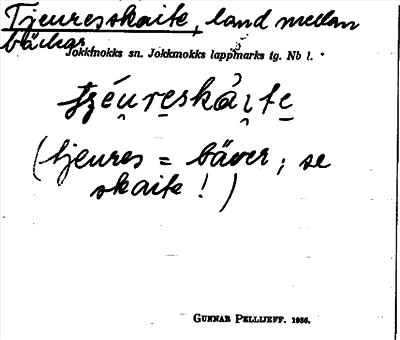 Tjeuresskaite, land mellan
bäckar
Jokkmokks sn. Jokkmokks lappmarks tg. Nb l.
(tjeures = bäver; se
skaite!)
GUNNAR PELLIJEFF. 1936.